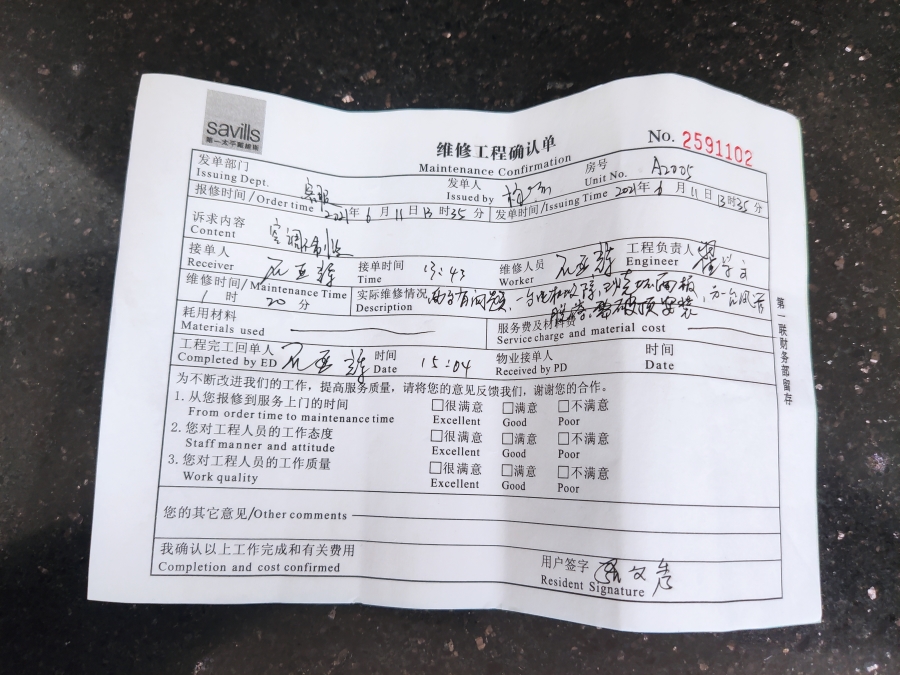 savills
第一太平戴维斯
维修工程确认单
Maintenance Confirmation
No. 2591102
发单部门 客服 发单人 房号 A2005
Issuing Dept. Issued by Unit No.
报修时间/Order time 2021年6月11日13时35分 发单时间/Issuing Time 2021年6月11日13时35分
诉求内容 空调不制冷
Content
接单人 石亚辉 接单时间 13:43 维修人员 石亚辉 工程负责人
Receiver Time Worker Engineer
维修时间/Maintenance Time 实际维修情况 两台有问题,一台电机故障
1时20分 Description
耗用材料 服务费及材料费
Materials used Service charge and material cost
工程完工回单人 石亚辉 时间 15:04 物业接单人 时间
Completed by ED Date Received by PD Date
为不断改进我们的工作,提高服务质量,请将您的意见反馈我们,谢谢您的合作。
1. 从您报修到服务上门的时间 □很满意 □满意 □不满意
From order time to maintenance time Excellent Good Poor
2. 您对工程人员的工作态度 □很满意 □满意 □不满意
Staff manner and attitude Excellent Good Poor
3. 您对工程人员的工作质量 □很满意 □满意 □不满意
Work quality Excellent Good Poor
您的其它意见/Other comments
我确认以上工作完成和有关费用 用户签字
Completion and cost confirmed Resident Signature
第一联财务部留存